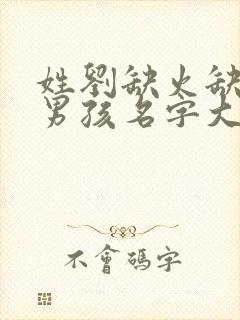 姓劉缺火缺
男孩名字大
不會碼字